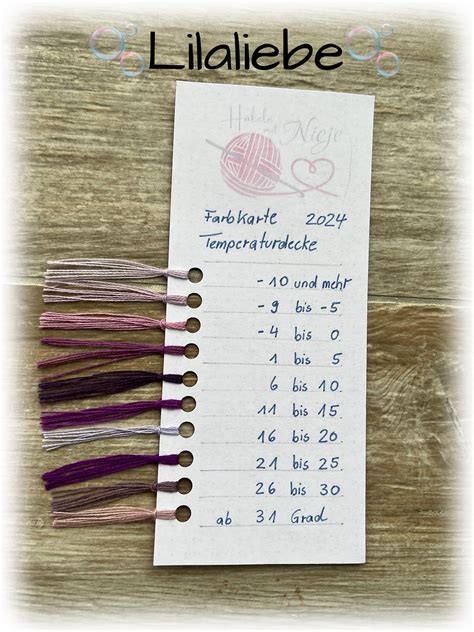 Lilaliebe
Häkeln
mit Nicje
Farbkarte 2024
Temperaturdecke
-10 und mehr
-9 bis -5
-4 bis 0
1 bis 5
6 bis 10
11 bis 15
16 bis 20
21 bis 25
26 bis 30
ab 31 Grad